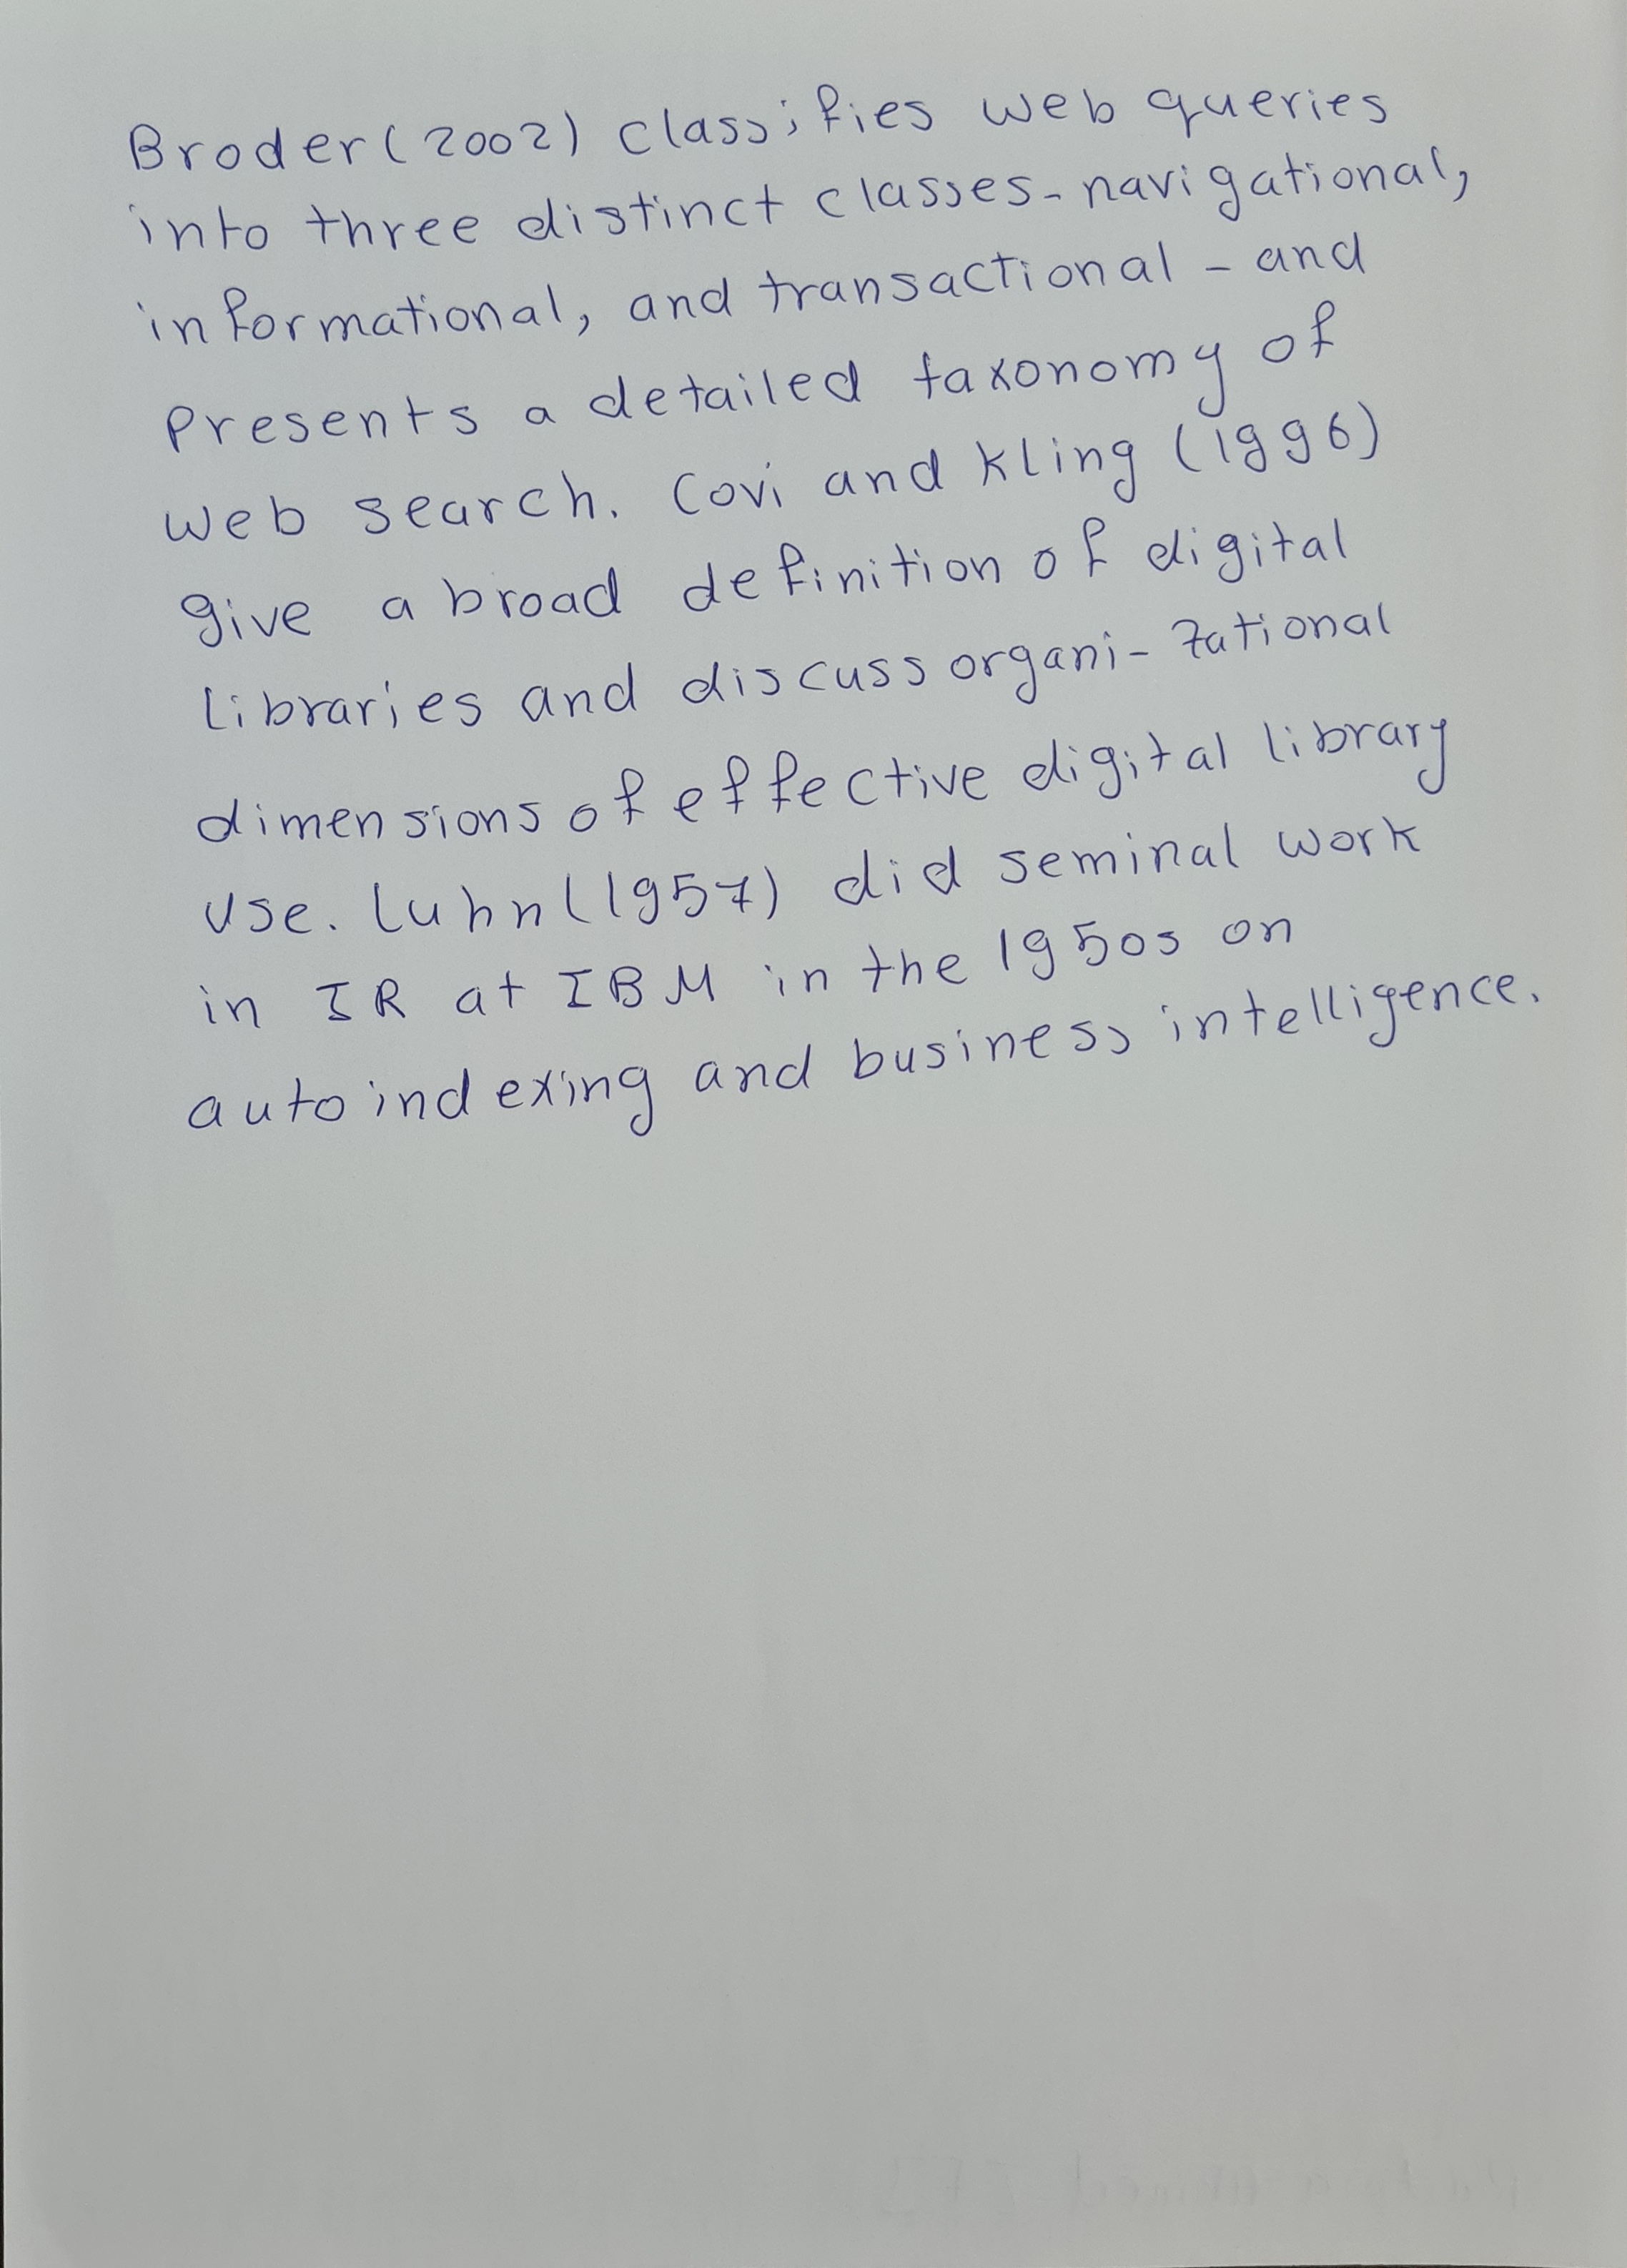 Broder (2002) classifies web queries
into three distinct classes - navigational,
informational, and transactional - and
presents a detailed taxonomy of
web search. Covi and Kling (1996)
give a broad definition of digital
libraries and discuss organi- zational
dimensions of effective digital library
use. Luhn (1957) did seminal work
in IR at IBM in the 1950s on
autoindexing and business intelligence.